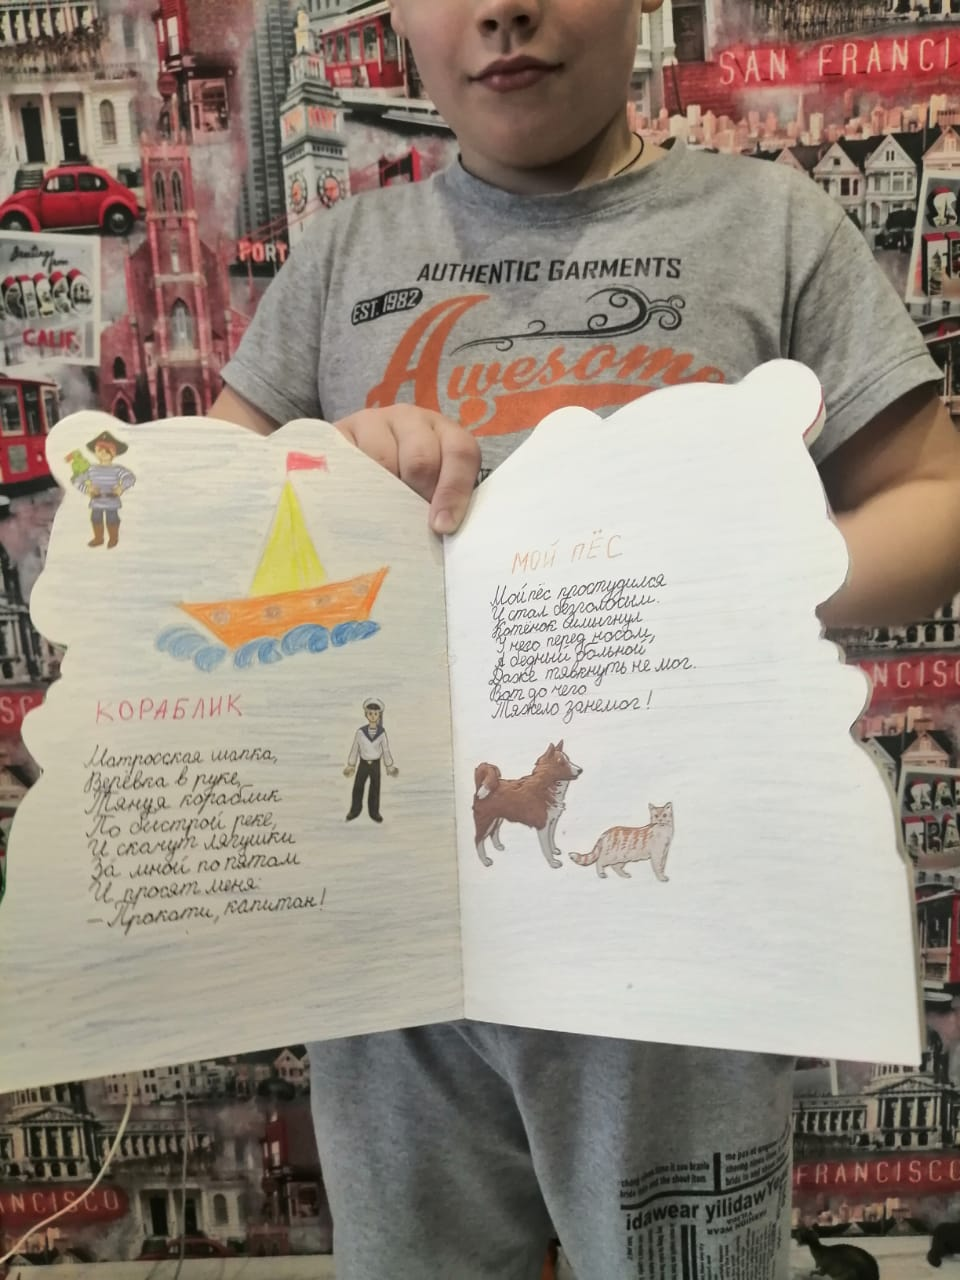 SAN FRANCI
PORT
Greetings from
CALIF.
AUTHENTIC GARMENTS
EST. 1982
Awesome
КОРАБЛИК
Матросская шапка,
Верёвка в руке,
Тяну я кораблик
По быстрой реке,
И скачут лягушки
За мной по пятам
И просят меня:
– Прокати, капитан!
МОЙ ПЁС
Мой пёс простудился
И стал безголосым.
Котёнок шмыгнул
У него перед носом,
А бедный больной
Даже тявкнуть не мог.
Вот до чего
Тяжело занемог!
NCISC
ANCISCO
FRANCISCO
idawear yilidaw